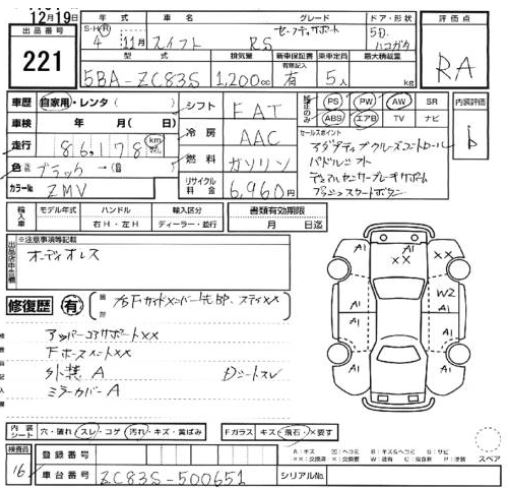 12月19日
出品番号
221
年式 車名 グレード ドア・形状 評価点
S・H・R 4 11月 スイフト RS セーフティサポート 5D ハコガタ
RA
型式 排気量 新車保証書 乗車定員 最大積載量
有無記入
5BA-ZC83S 1,200cc 有 5人 kg
車歴 自家用・レンタ( )
シフト FAT
PS PW AW SR
ABS エアB TV ナビ
内装評価
b
車検 年 月( 日)
冷房 AAC
セールスポイント
アダプティブクルーズコントロール
パドルシフト
デュアルセンサーブレーキサポート
プッシュスタートボタン
走行 86,178 km
燃料 ガソリン
色 ブラック
リサイクル料金 6,960円
カラーNo. ZMV
輸入車 モデル年式 ハンドル 輸入区分 書類有効期限
右H・左H ディーラー・並行 月 日迄
※注意事項等記載
オーディオレス
修復歴 有
アッパーコアサポート××
外装 A
ミラーカバー A
Dシートスレ
A1 ×× A1 ××
A1 W2
A1 A1
A1 A1
内装シート 穴・破れ・スレ・コゲ・汚れ・キズ・黄ばみ
Fガラス キズ・飛石・×要す
スペア
検査員
16
登録番号
車台番号 ZC83S-500651 シリアルNo.